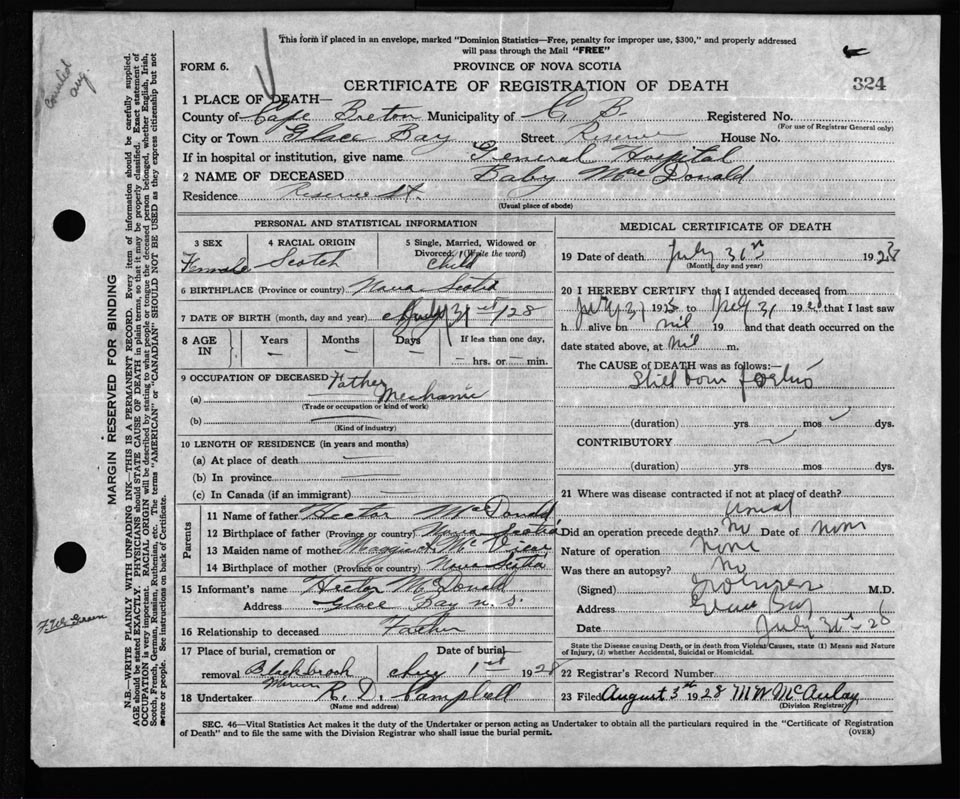 This form if placed in an envelope, marked "Dominion Statistics—Free, penalty for improper use, $300," and properly addressed
will pass through the Mail "FREE"
FORM 6.
PROVINCE OF NOVA SCOTIA
CERTIFICATE OF REGISTRATION OF DEATH
324
1 PLACE OF DEATH—
County of Cape Breton Municipality of C. B. Registered No.
(For use of Registrar General only)
City or Town Glace Bay Street Reserve House No.
If in hospital or institution, give name General Hospital
2 NAME OF DECEASED Baby MacDonald
Residence Reserve St.
(Usual place of abode)
PERSONAL AND STATISTICAL INFORMATION
3 SEX Female
4 RACIAL ORIGIN Scotch
5 Single, Married, Widowed or Divorced (Write the word) Child
6 BIRTHPLACE (Province or country) Nova Scotia
7 DATE OF BIRTH (month, day and year) July 31st/28
8 AGE IN Years — Months — Days — If less than one day, — hrs. or — min.
9 OCCUPATION OF DECEASED Father
(a) Mechanic
(Trade or occupation or kind of work)
(b)
(Kind of industry)
10 LENGTH OF RESIDENCE (in years and months)
(a) At place of death
(b) In province
(c) In Canada (if an immigrant)
Parents
11 Name of father Hector McDonald
12 Birthplace of father (Province or country) Nova Scotia
13 Maiden name of mother
14 Birthplace of mother (Province or country) Nova Scotia
15 Informant's name Hector McDonald
Address Glace Bay N. S.
16 Relationship to deceased Father
17 Place of burial, cremation or removal Blackbrook
Date of burial 1st 1928
18 Undertaker Campbell
(Name and address)
MEDICAL CERTIFICATE OF DEATH
19 Date of death July 1928
(Month, day and year)
20 I HEREBY CERTIFY that I attended deceased from
July 31 1928 to July 31 1928 that I last saw
h alive on nil 19 and that death occurred on the
date stated above, at nil m.
The CAUSE of DEATH was as follows:—
Still born
(duration) yrs. mos. dys.
CONTRIBUTORY
(duration) yrs. mos. dys.
21 Where was disease contracted if not at place of death?
Did an operation precede death? No Date of none
Nature of operation none
Was there an autopsy? No
(Signed) M.D.
Address Glace Bay
Date July 31st - 28
State the Disease causing Death, or in death from Violent Causes, state (1) Means and Nature
of Injury, (2) whether Accidental, Suicidal or Homicidal.
22 Registrar's Record Number
23 Filed August 3rd 1928 M W McAulay
(Division Registrar)
SEC. 46—Vital Statistics Act makes it the duty of the Undertaker or person acting as Undertaker to obtain all the particulars required in the "Certificate of Registration
of Death" and to file the same with the Division Registrar who shall issue the burial permit.
(OVER)
MARGIN RESERVED FOR BINDING
N.B—WRITE PLAINLY WITH UNFADING INK—THIS IS A PERMANENT RECORD. Every item of information should be carefully supplied.
AGE should be stated EXACTLY. PHYSICIANS should STATE CAUSE OF DEATH in plain terms, so that it may be properly classified. Exact statement of
OCCUPATION is very important. RACIAL ORIGIN will be described by stating to what people or tongue the deceased person belonged, whether English, Irish,
Scotch, French, German, Russian, Ruthenian, etc. The terms "AMERICAN" or "CANADIAN" SHOULD NOT BE USED as they express citizenship but not
a race or people. See instructions on back of Certificate.